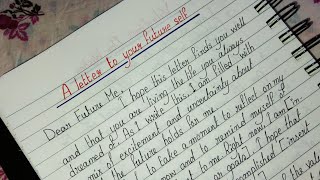 A letter to your future self
Dear Future Me,
I hope this letter finds you well
and that you are living the life you always
dreamed of. As I write this, I am filled with
mix of excitement and uncertainty about
the future holds for me
to take a moment to reflect on my
and to remind myself of
to me. Right now, I am in
or goals). I hope that
accomplished (insert